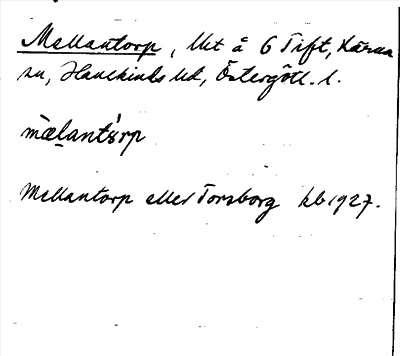 Mellantorp, lht å 6 Tift, Kärna
sn, Hanekinds hd, Östergötl. l.
mæ̀lantórp
Mellantorp eller Torsborg kb 1927.